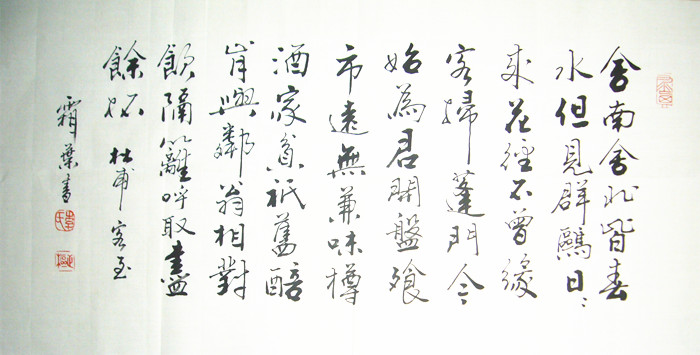 舍南舍北皆春
水但見群鷗日〻
來花徑不曾緣
客掃蓬門今
始為君開盤飧
市遠無兼味樽
酒家貧祇舊醅
肯與鄰翁相對
飲隔籬呼取盡
餘杯 杜甫客至
霜葉書